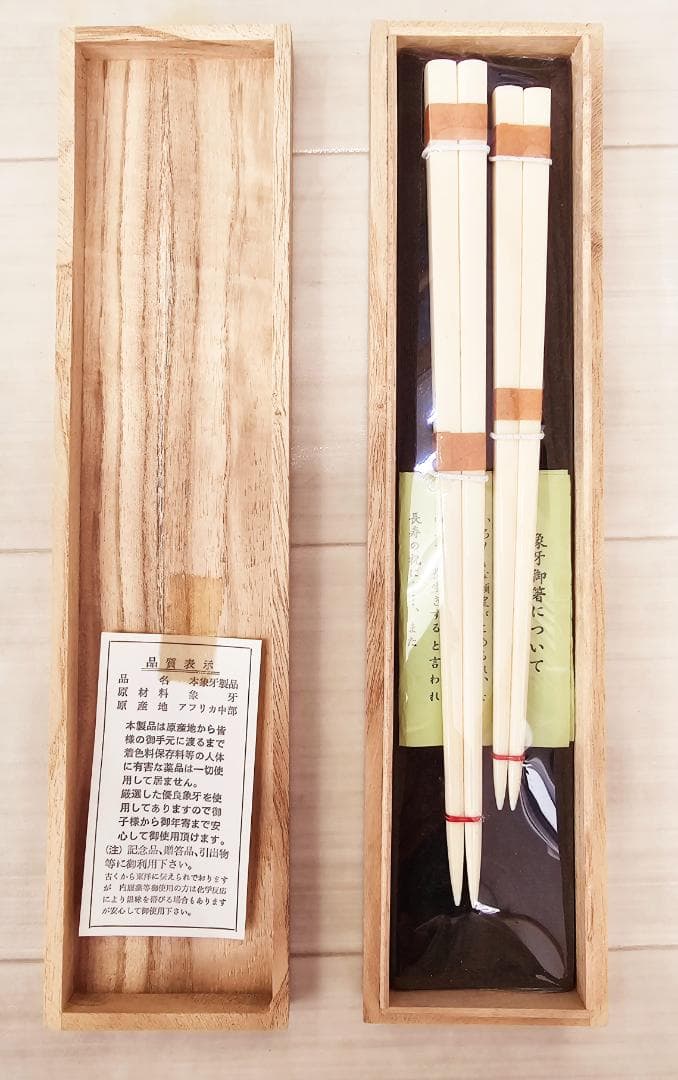 品質表示
品名 本象牙製品
原材料 象牙
原産地 アフリカ中部
本製品は原産地から皆
様の御手元に渡るまで
着色料保存料等の人体
に有害な薬品は一切使
用して居ません。
厳選した優良象牙を使
用してありますので御
子様から御年寄まで安
心して御使用頂けます。
(注)記念品、贈答品、引出物
等に御利用下さい。
古くから東洋に伝えられておりますが
が 内服薬等御使用の方は化学反応
により黒味を帯びる場合もあります
が安心して御使用下さい。
象牙御箸について
すると言われ
長寿の祝に
また